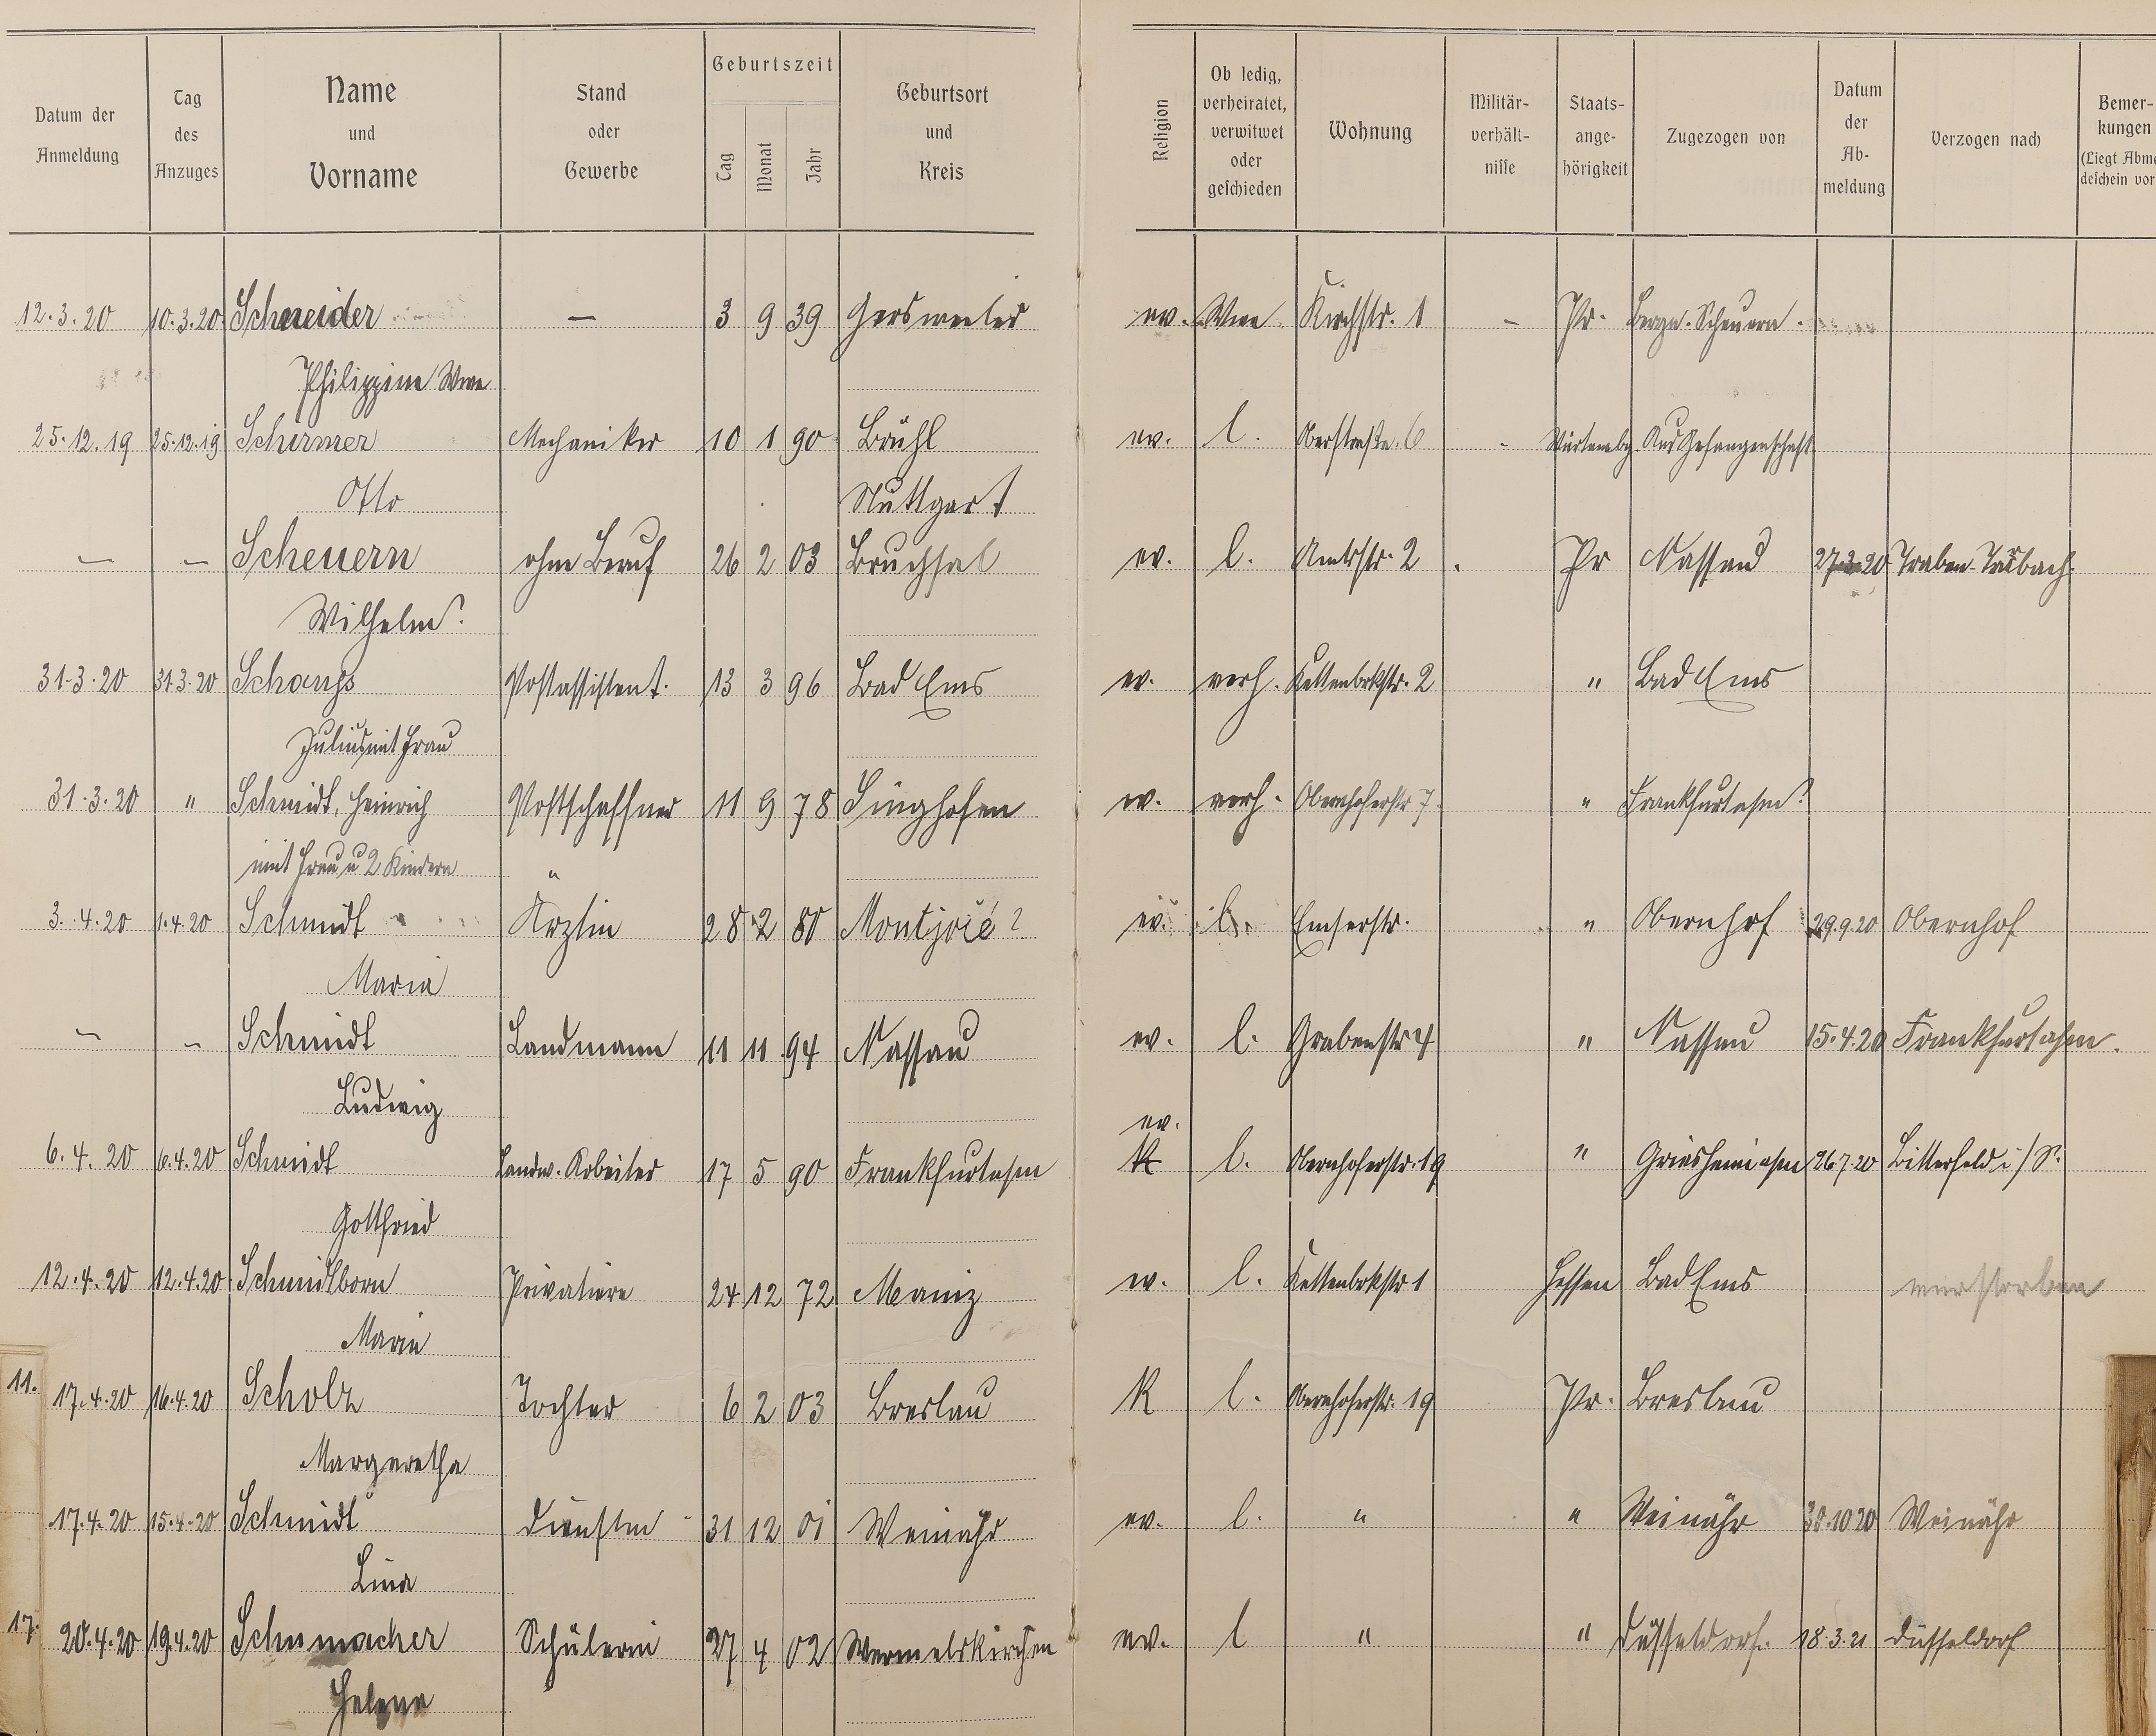 Datum der Anmeldung | Tag des Anzuges | Name und Vorname | Stand oder Gewerbe | Geburtszeit Tag Monat Jahr | Geburtsort und Kreis | Religion | Ob ledig, verheiratet, verwitwet oder geschieden | Wohnung | Militär-verhält-nisse | Staats-ange-hörigkeit | Zugezogen von | Datum der Ab-meldung | Verzogen nach | Bemer-kungen (Liegt Abme deschein vor
12.3.20 10.3.20 Schneider — 3 9 39 Gersweiler ev. Wwe Kirchstr. 1 – Pr. Bergn. Scheuern.
Philippine Wwe
25.12.19 25.12.19 Schirmer Mechaniker 10 1 90 Brühl ev. l. Oberstraße 6 - Würtembg. Aus Gefangenschaft
Otto Stuttgart
— — Scheuern ohne Beruf 26 2 03 Bruchsal ev. l. Amtstr. 2 . Pr Nassau 27.3.20 Traben-Trarbach
Wilhelm
31.3.20 31.3.20 Postassistent. 13 3 96 Bad Ems ev. verh. Kettenbrkstr. 2 " Bad Ems
Julius mit Frau
31.3.20 " Schmidt, Heinrich Postschaffner 11 9 78 Singhofen ev. verh. Obernhoferstr 7. " Frankfurt a/m
mit Frau u 2 Kindern
3.4.20 1.4.20 Schmidt Ärztin 28 2 80 Montjoié? ev. l. Emserstr. " Obernhof 29.9.20 Obernhof
Maria
— — Schmidt Landmann 11 11 94 Nassau ev. l. Grabenstr 4 " Nassau 15.4.20 Frankfurt a/m.
Ludwig
ev.
6.4.20 6.4.20 Schmidt Landw. Arbeiter 17 5 90 Frankfurt a/m K l. Obernhoferstr. 19 " Griesheim a/m 26.7.20 Bitterfeld i/S.
Gottfried
12.4.20 12.4.20 Schmidtborn Privatiere 24 12 72 Mainz ev. l. Kettenbrkstr 1 Hessen Bad Ems verstorben
Marie
11. 17.4.20 16.4.20 Scholz Tochter 6 2 03 Breslau K l. Obernhoferstr. 19 Pr. Breslau
Margaretha
17.4.20 15.4.20 Schmidt 31 12 01 Weinähr ev. l. " " Weinähr 30.10.20 Weinähr
Lina
17. 20.4.20 19.4.20 Schumacher Schülerin 27 4 02 Wermelskirchen ev. l " " Düsseldorf. 18.3.21 Düsseldorf
Helene